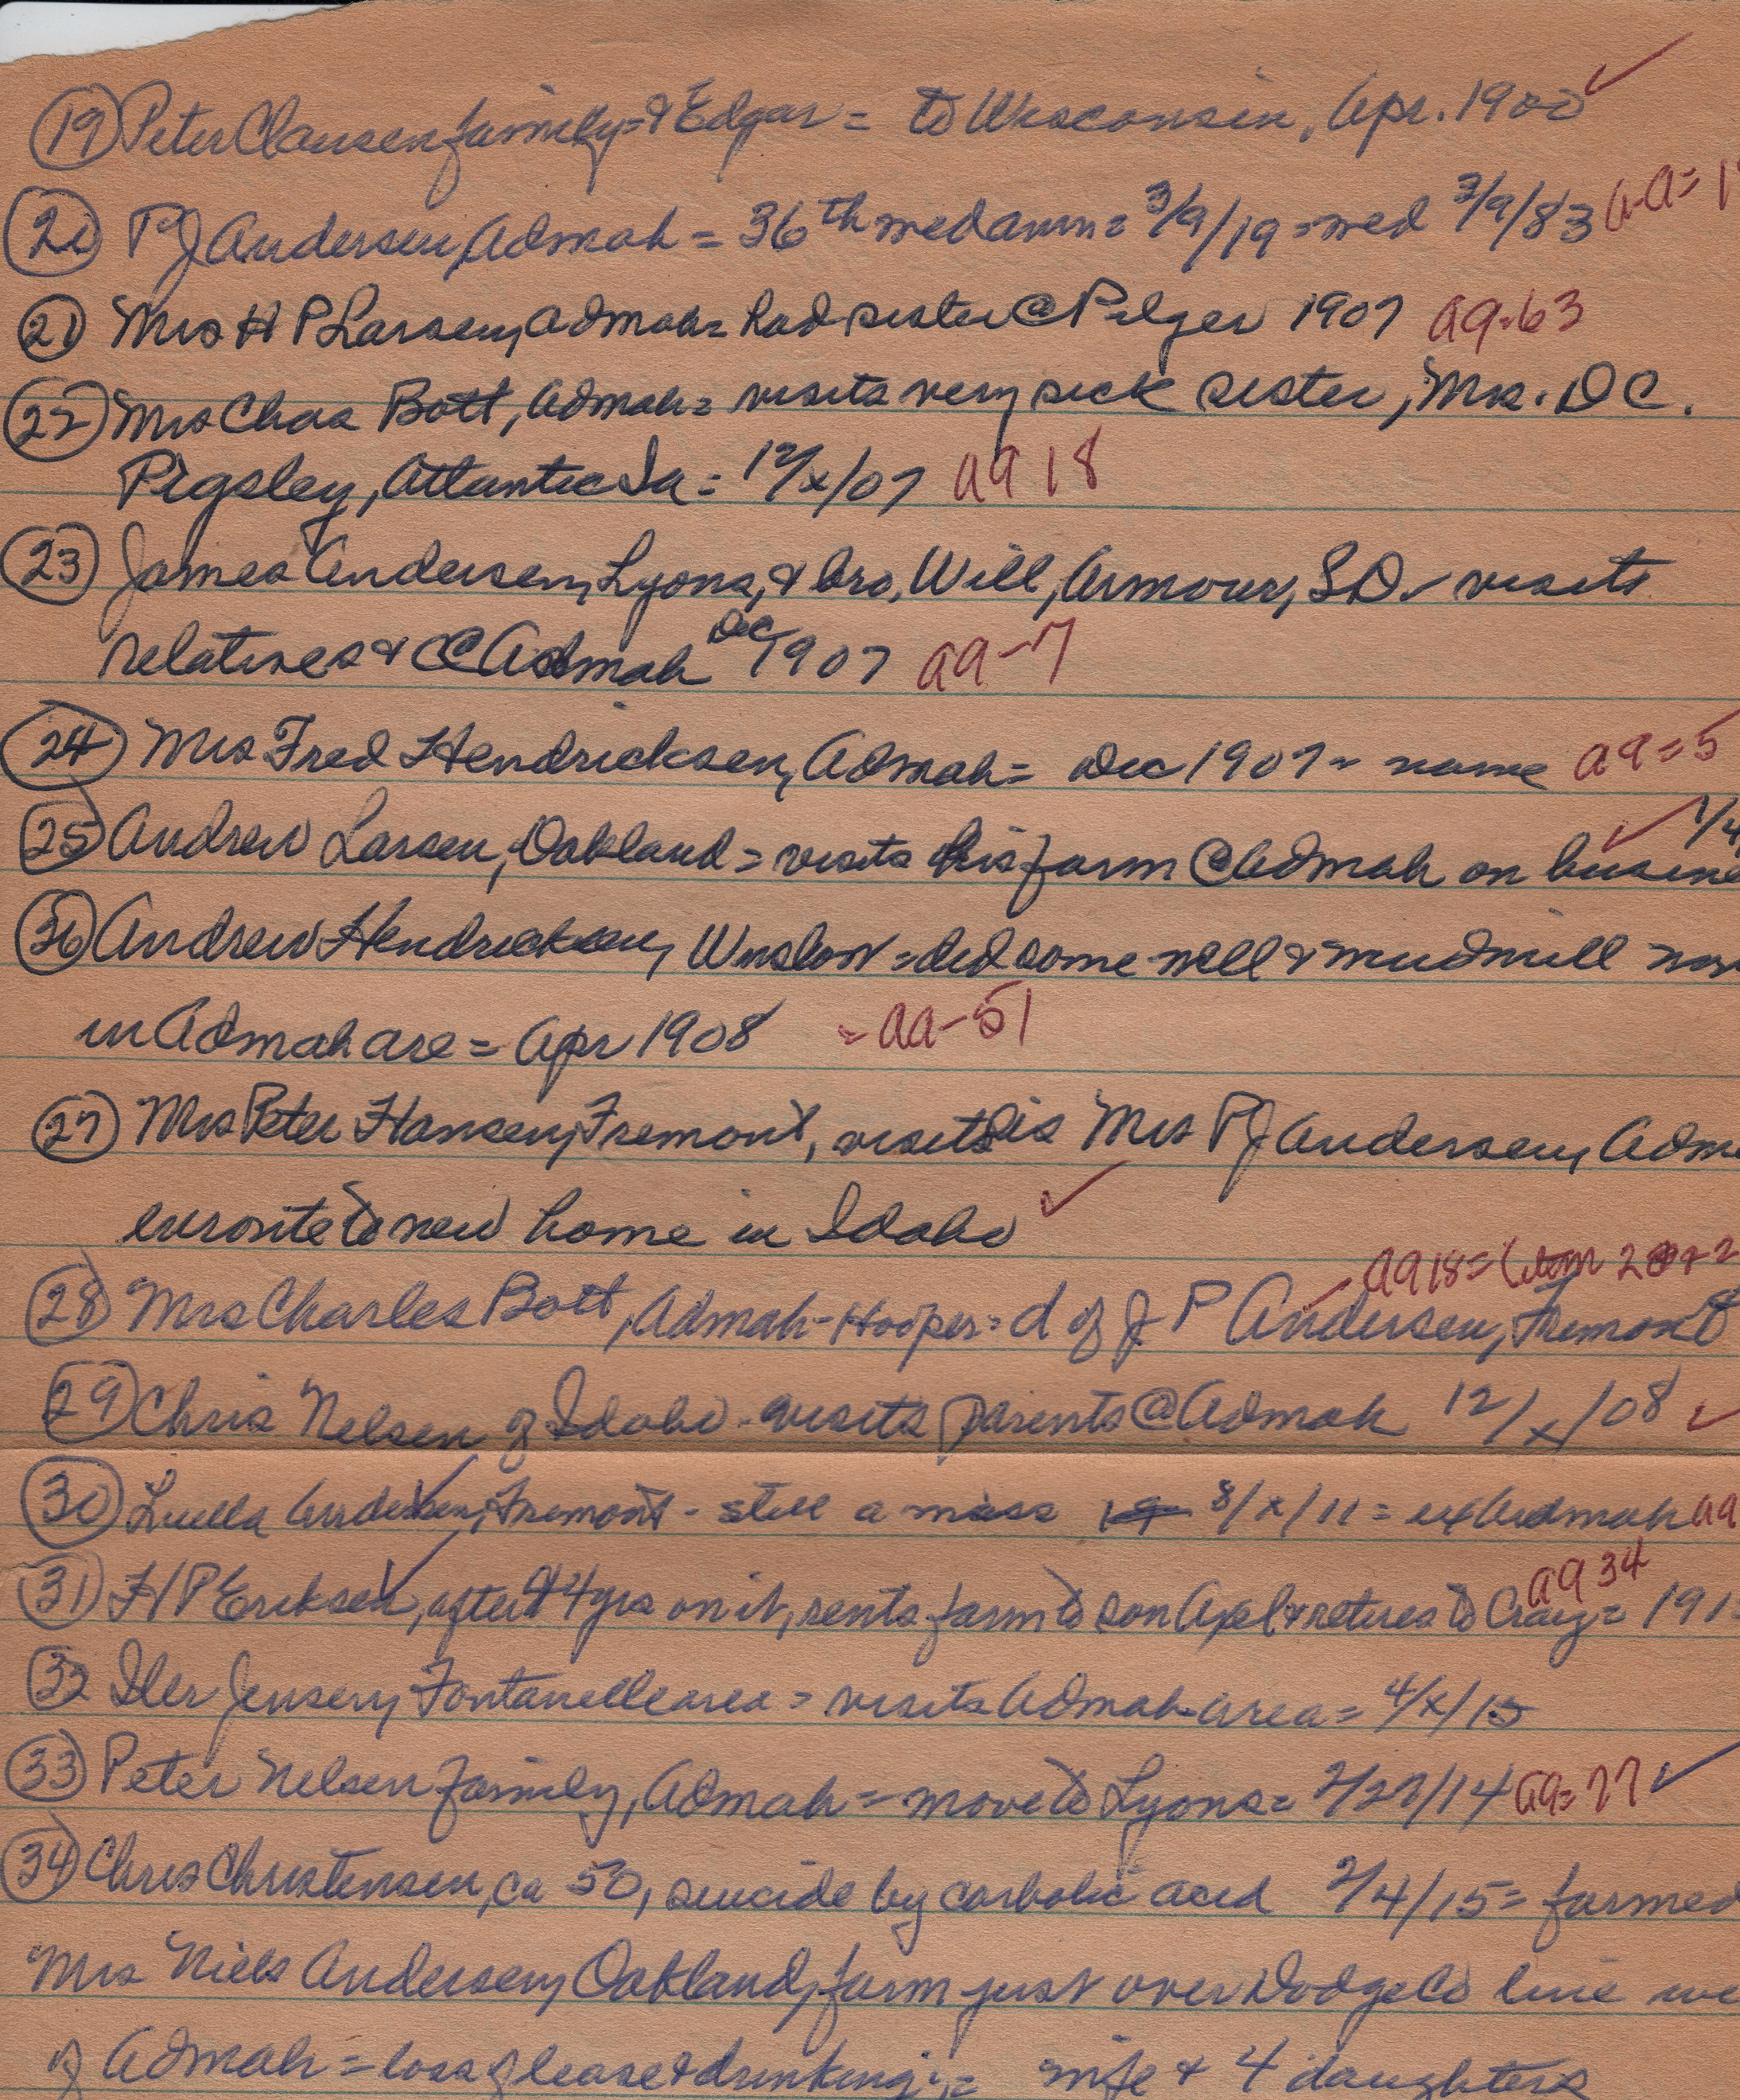 19 Peter Clausen family = & Edgar = to Wisconsin, Apr. 1900 ✓
20 PJ Andersen, Admah = 36th wed ann = 3/9/19 = wed 3/9/83 a-a= 1
21 Mrs H P Larsen, Admah = had sister @ Pilger 1907 aa-63
22 Mrs Chas Bott, Admah = visits very sick sister, Mrs. D C.
Pigsley, Atlantic Ia = 12/x/07 aa 18
23 James Andersen, Lyons, & bro, Will, Armour, SD - visits
relatives & @ Admah Dec 1907 aa-7
24 Mrs Fred Hendricksen, Admah = Dec 1907 = name aa=5
25 Andrew Larsen, Oakland = visits his farm @ Admah on busine ✓ 1/4
36 Andrew Hendricksen, Winslow = did some well & windmill wor
in Admah are = Apr 1908 = aa-51
27 Mrs Peter Hansen, Fremont, visits sis Mrs PJ Andersen, Adm
enroute to new home in Idaho ✓
28 Mrs Charles Bott, Admah-Hooper = d of J P Andersen, Fremont ✓ aa18=
29 Chris Nelsen of Idaho - visits parents @ Admah 12/x/08 ✓
30 Luella Andersen, Fremont - still a miss 8/x/11 = ex Admah aa
31 H P Eriksen, after 44 yrs on it, rents farm to son Axel & retires to Craig = 191 aa 34
32 Iler Jensen, Fontanelle area = visits Admah area = 4/x/15
33 Peter Nelsen family, Admah = move to Lyons = 2/27/14 aa=77 ✓
34 Chris Christensen, ca 50, suicide by carbolic acid 2/4/15 = farmed
Mrs Niels Andersen, Oakland, farm just over Dodge Co line we
of Admah = loss of lease & drinking = wife & 4 daughters